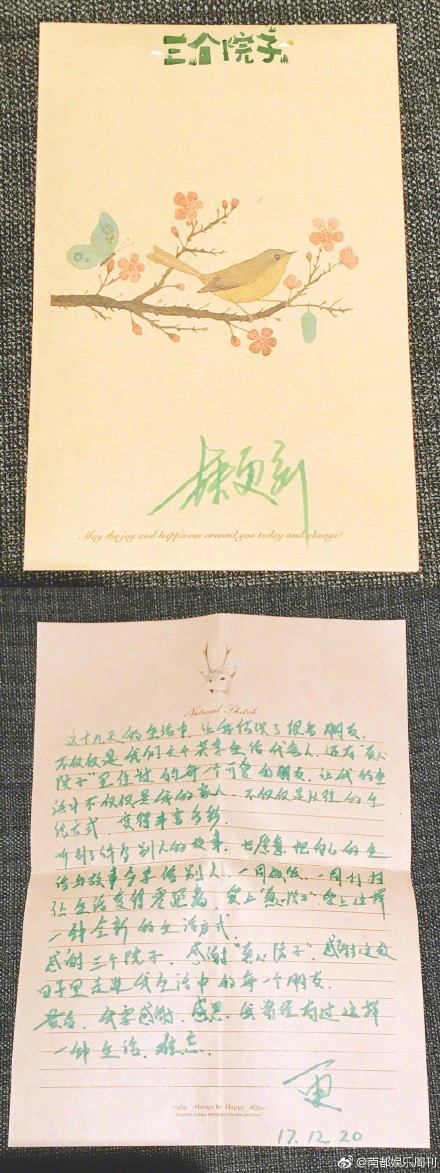 三个院子
徐更刻
May the joy and happiness around you today and always!
Natural Sketch
这十几天的生活中，让我结识了很多朋友，
不仅仅是我们这个共享生活代言人，还有“真心
院子”里住过的每一个可爱的朋友，让我的生
活中不仅仅是我的家人，不仅仅是从往的生
活方式，变得丰富多彩。
听到了许多别人的故事，也愿意把自己的生
活与故事分享给别人，一同做饭，一同打扫
让生活变得零距离，爱上“真心院子”，爱上这样
一种全新的生活方式。
感谢三个院子，感谢“真心院子”，感谢这段
日子里走进我生活中的每一个朋友。
最后，我要感谢，感恩，我曾经有过这样
一种生活，难忘。
更
17.12.20
Always be Happy
@南都娱乐周刊